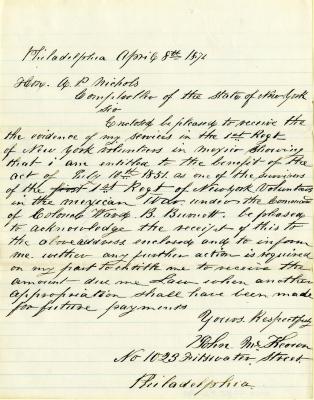 Philadelphia April 8th 187
Hon. A. P. Nichols
Comptroller of the State of New York
Sir
Enclosed be pleased to receive the
the evidence of my services in the 1st Regt
of New York Volunteers in mexico showing
that i am entitled to the benefit of the
act of July 10th 1851. as one of the survivors
of the first 1st Regt of New York Volunteers
in the mexican War under the Command
of Colonel Ward B. Burnett. be pleased
to acknowledge the receipt of this to
the above address enclosed and to inform
me wither any further action is required
on my part to entitle me to receive the
amount due me Law when another
appropriation shall have been made
for future payments
Yours Respectfuly
John McKeown
No 1023 Fitzwater Street
Philadelphia